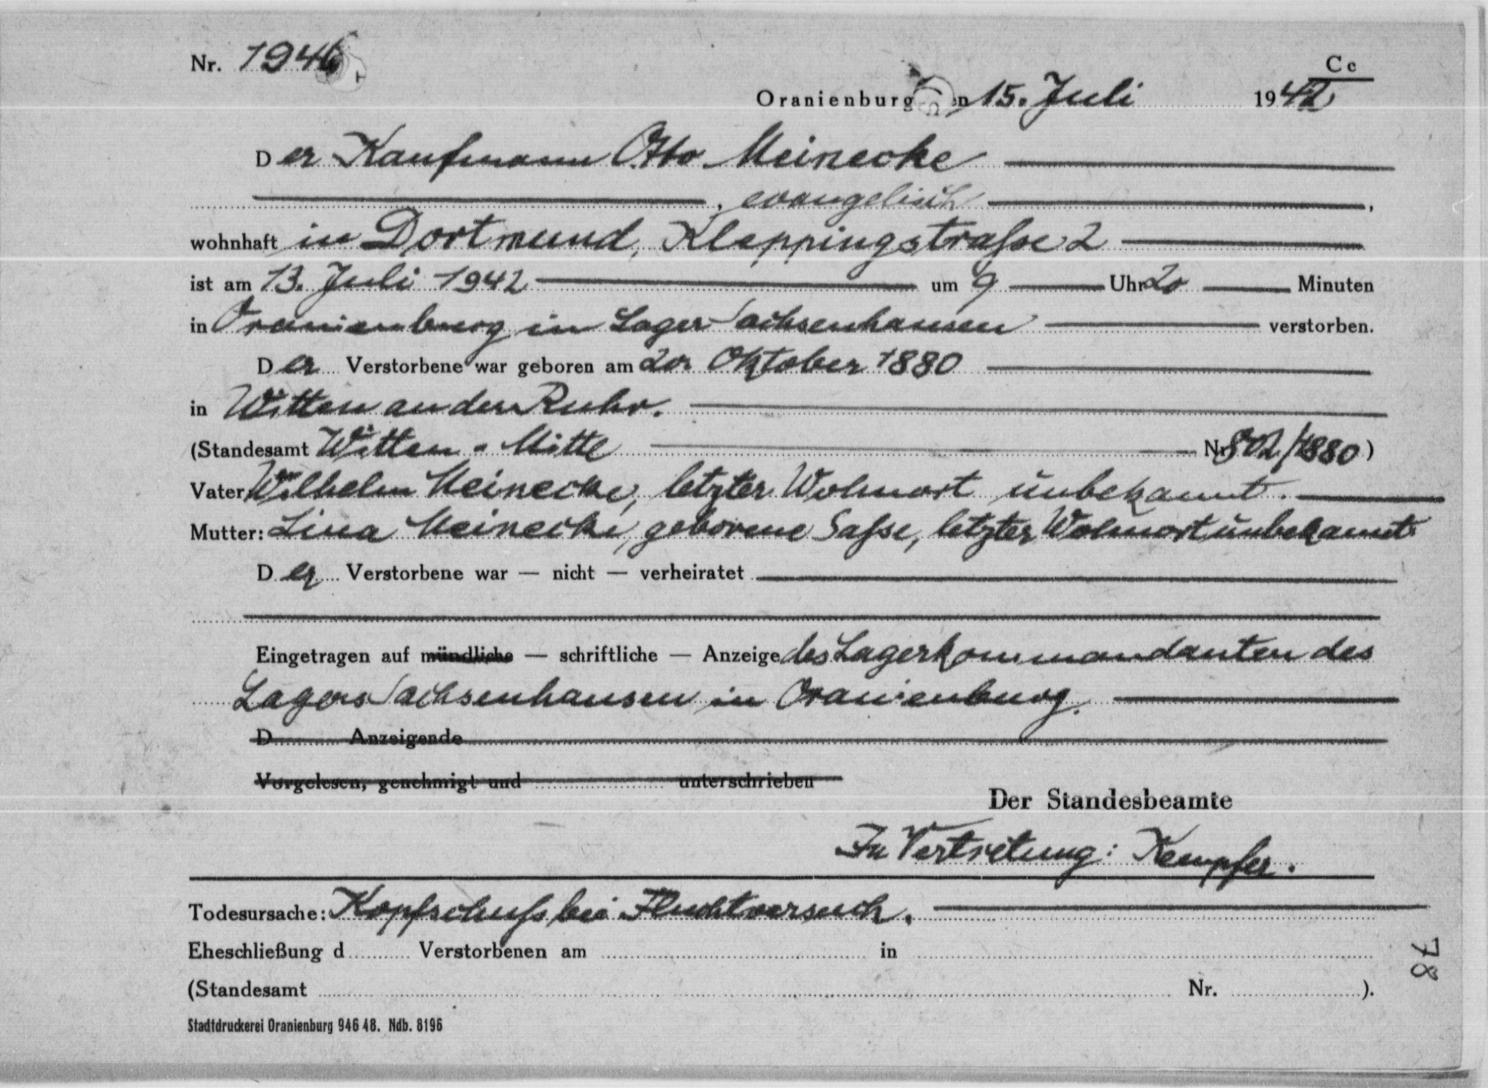 Nr. 1946
Cc
Oranienburg, den 15. Juli 1942
Der Kaufmann Otto Meinecke
, evangelisch,
wohnhaft in Dortmund, Kleppingstraße 2
ist am 13. Juli 1942 um 9 Uhr 20 Minuten
in Oranienburg im Lager Sachsenhausen verstorben.
Der Verstorbene war geboren am 20. Oktober 1880
in Witten an der Ruhr.
(Standesamt Witten-Mitte Nr. 802/1880)
Vater: Wilhelm Meinecke, letzter Wohnort unbekannt.
Mutter: Lina Meinecke, geborene Saße, letzter Wohnort unbekannt
Der Verstorbene war — nicht — verheiratet
Eingetragen auf mündliche — schriftliche — Anzeige des Lagerkommandanten des
Lagers Sachsenhausen in Oranienburg.
D Anzeigende
Vorgelesen, genehmigt und unterschrieben
Der Standesbeamte
In Vertretung: Kempfer.
Todesursache: Kopfschuß bei Fluchtversuch.
78
Eheschließung d Verstorbenen am in
(Standesamt Nr. ).
Stadtdruckerei Oranienburg 946 48. Ndb. 8196